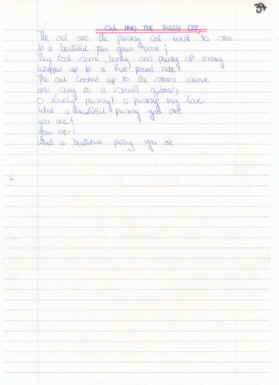 Owl AND THE PUSSY CAT
The owl and the pussy cat went to sea
In a beautiful pea green boat;
They took some honey and plenty of money
wrapped up in a five pound note.
The owl looked up to the stars above
and sang to a small guitar,
O lovely pussy! O pussy my love
what a beautiful pussy you are
you are!
you are!
what a beautiful pussy you are